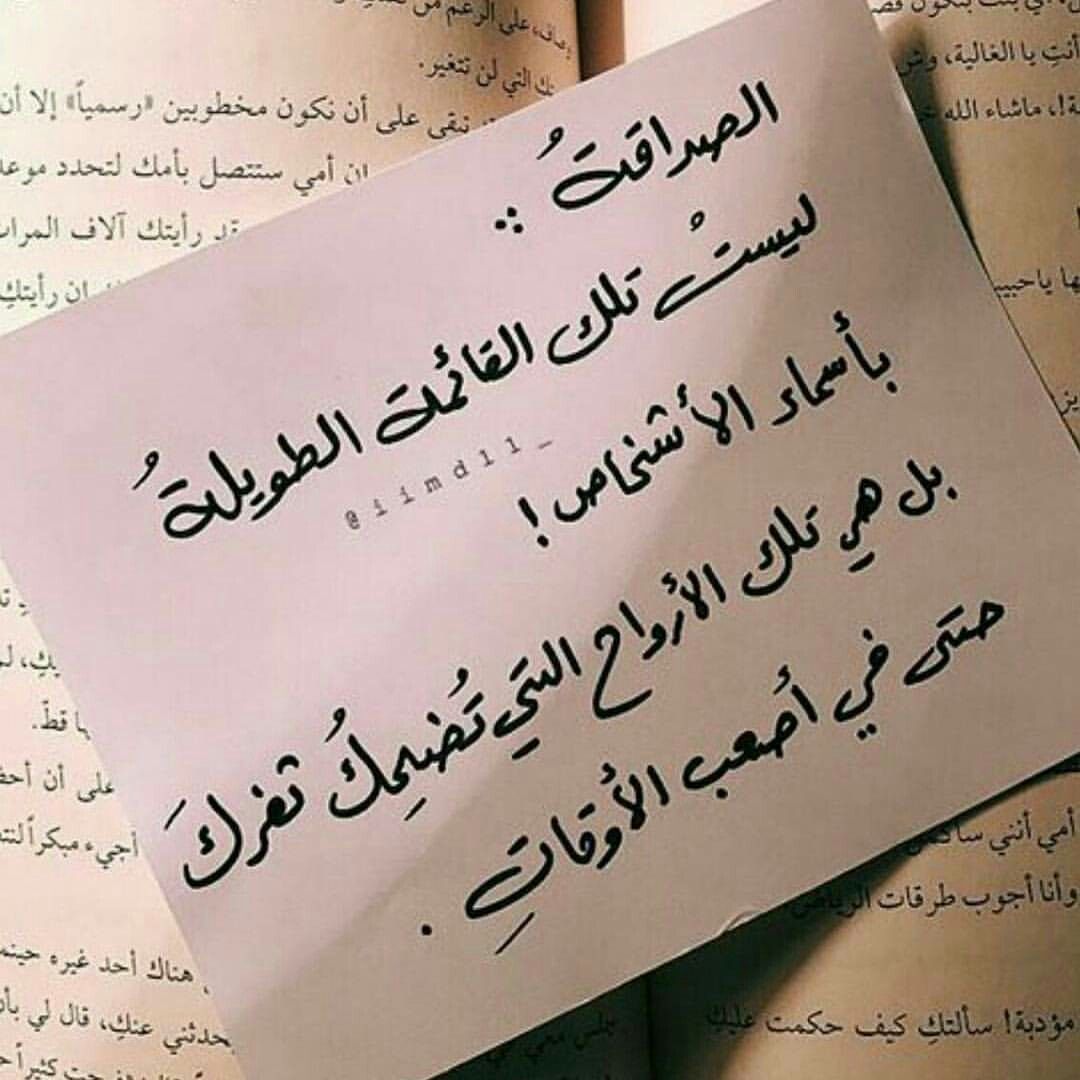 الصداقةُ :
ليستْ تلك القائمة الطويلةُ
بأسماء الأشخاص !
بل هي تلك الأرواح التي تُضحِكُ ثغركَ
حتى في أصعب الأوقاتِ .
@iimd11_
على الرغم من
التي لن تتغير.
تبقى على أن نكون مخطوبين «رسمياً» إلا أن
إن أمي ستتصل بأمك لتحدد موعد
رأيتك آلاف المرات
إن رأيتكِ
أنتِ يا الغالية،
ماشاء الله
قطّ.
على أن
أجيء مبكراً
هناك أحد غيره
يحدثني عنكِ، قال لي
أمي أنني
وأنا أجوب طرقات الرياض
مؤدبة! سألتكِ كيف حكمت عليكِ